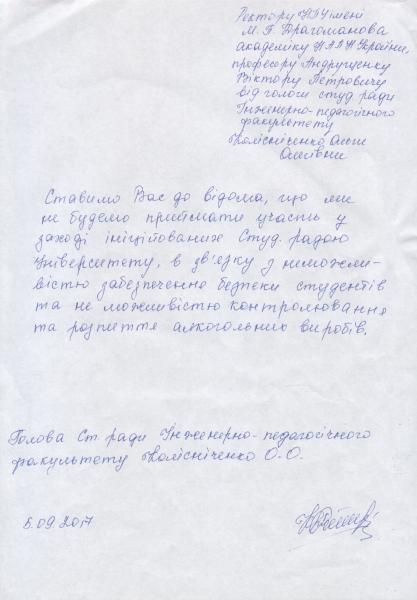 Ректору НПУ імені
М. П. Драгоманова
академіку НАПН України,
професору Андрущенку
Віктору Петровичу
від голови студ ради
Інженерно-педагогічного
факультету
Колісніченко Ольги
Олегівни
Ставимо Вас до відома, що ми
не будемо приймати участь у
заході ініційованих Студ. радою
Університету, в зв'язку з неможли-
вістю забезпечення безпеки студентів
та не можливістю контролювання
та розпиття алкогольних виробів.
Голова Ст ради Інженерно-педагогічного
факультету Колісніченко О.О.
5.09.2017